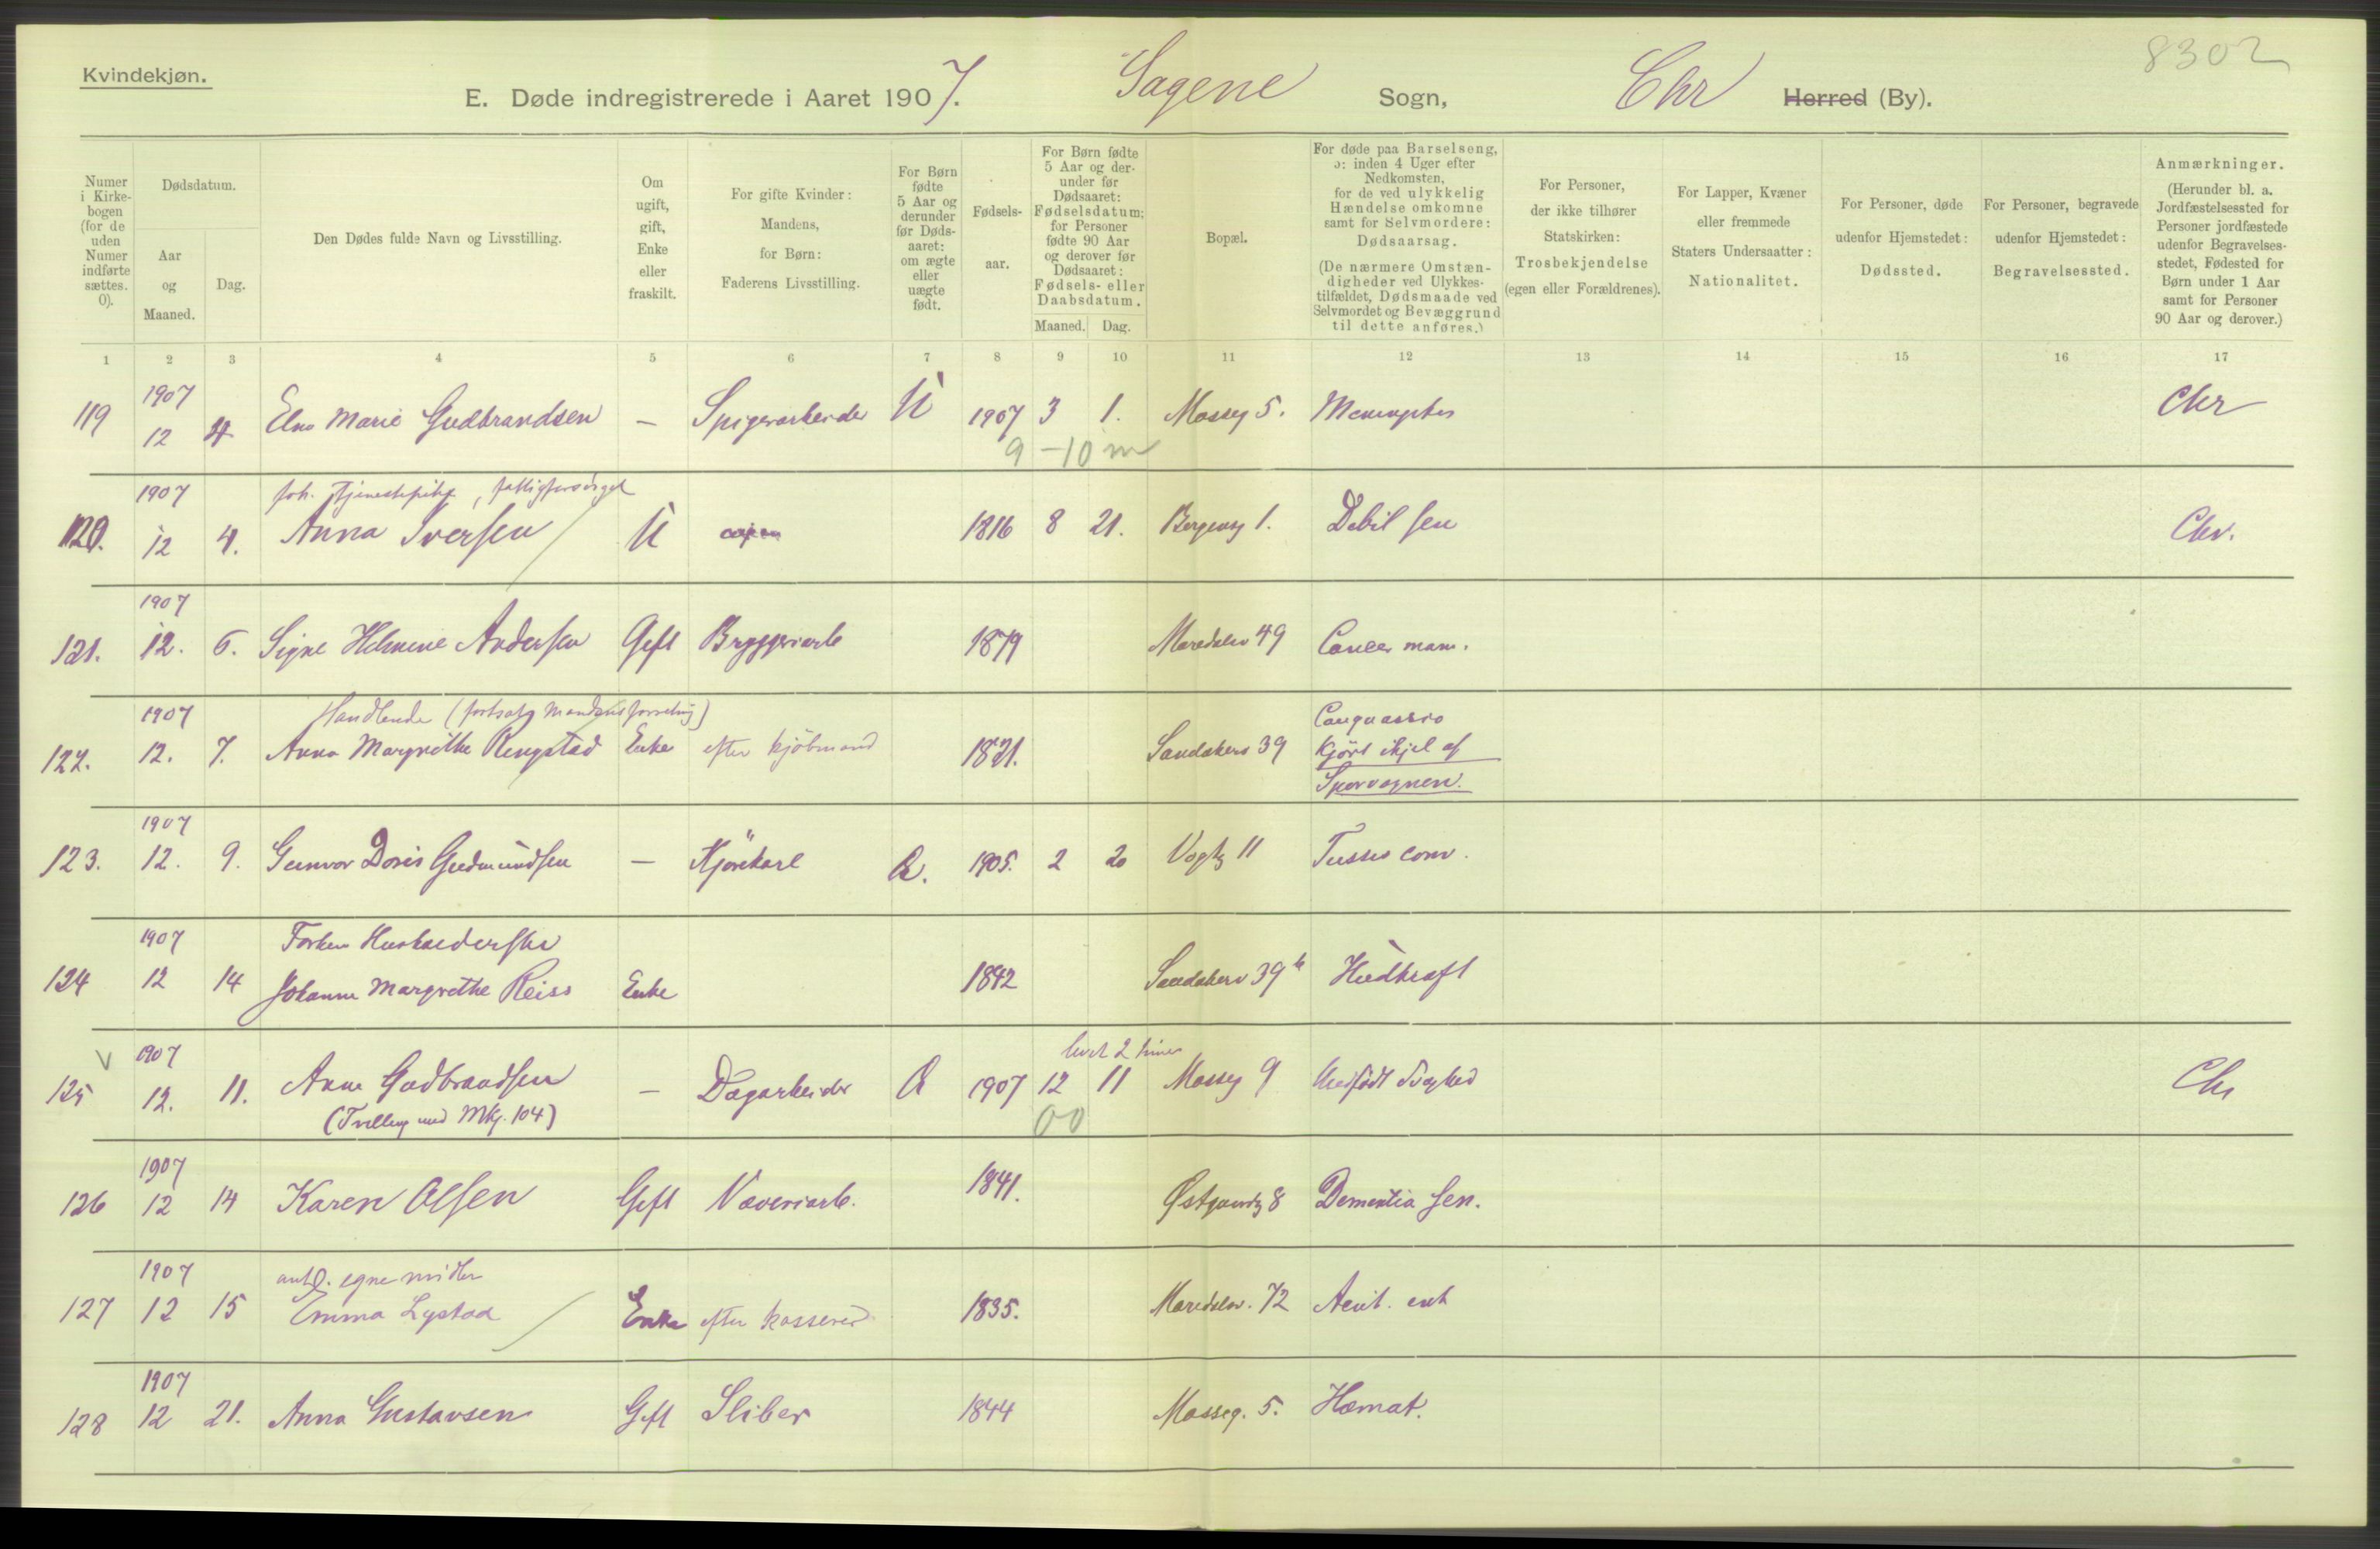 Kvindekjøn.
8302
E. Døde indregistrerede i Aaret 1907. Sagene Sogn, Chr Herred (By).
Numer i Kirkebogen (for de uden Numer indførte sættes. 0).
Dødsdatum.
Aar og Maaned.
Dag.
Den Dødes fulde Navn og Livsstilling.
Om ugift, gift, Enke eller fraskilt.
For gifte Kvinder: Mandens, for Børn: Faderens Livsstilling.
For Børn fødte 5 Aar og derunder før Dødsaaret: om ægte eller uægte født.
Fødselsaar.
For Børn fødte 5 Aar og derunder før Dødsaaret: Fødselsdatum; for Personer fødte 90 Aar og derover før Dødsaaret: Fødsels- eller Daabsdatum.
Maaned. Dag.
Bopæl.
For døde paa Barselseng, ɔ: inden 4 Uger efter Nedkomsten, for de ved ulykkelig Hændelse omkomne samt for Selvmordere: Dødsaarsag. (De nærmere Omstændigheder ved Ulykkestilfældet, Dødsmaade ved Selvmordet og Bevæggrund til dette anføres.)
For Personer, der ikke tilhører Statskirken: Trosbekjendelse (egen eller Forældrenes).
For Lapper, Kvæner eller fremmede Staters Undersaatter: Nationalitet.
For Personer, døde udenfor Hjemstedet: Dødssted.
For Personer, begravede udenfor Hjemstedet: Begravelsessted.
Anmærkninger. (Herunder bl. a. Jordfæstelsessted for Personer jordfæstede udenfor Begravelsesstedet, Fødested for Børn under 1 Aar samt for Personer 90 Aar og derover.)
1 2 3 4 5 6 7 8 9 10 11 12 13 14 15 16 17
1907
119 12 4 Marie Gudbrandsen — Spigerarbeider U 1907 3 1. Mosseg 5. Chr
9 – 10 m
1907 Tjenestepike, fattigforsörget
120. 12 4. Anna Iversen U 1816 8 21. Bergensg 1. Debil sen Chr.
1907
121. 12. 6. Signe Helmine Andersen Gift Bryggeriarb 1879 Maridalsv 49 Cancer mam.
1907 Handlende (fortsatte Mandens forretning) Conquassio
122. 12. 7. Anna Margrethe Rengstad Enke efter kjöbmand 1821. Sandakerv 39 Kjört ihjel af
Sporvognen.
1907
123. 12. 9. Gunvor Doris Gudmundsen — Kjörekarl Æ. 1905. 2 20 Vogtsg 11 Tussis conv.
1907 Forhen Husholderske
124 12 14 Johanne Margrethe Reiss Enke 1842 Sandakerv 39 b Hudkræft
1907 levet 2 timer
125 12. 11. Anne Gudbrandsen — Dagarbeider Æ 1907 12 11 Mosseg 9 Medfödt Svaghed Chr
(Tvilling med Mkj. 104) 00
1907
126 12 14 Karen Olsen Gift Væveriarb. 1841. Østgaardsg 8 Dementia sen.
1907 egne midler
127 12 15 Emma Lystad Enke efter kasserer 1835. Maridalsv. 72
1907
128 12 21. Anna Gustavsen Gift Sliber 1844 Mosseg. 5. Hæmat.